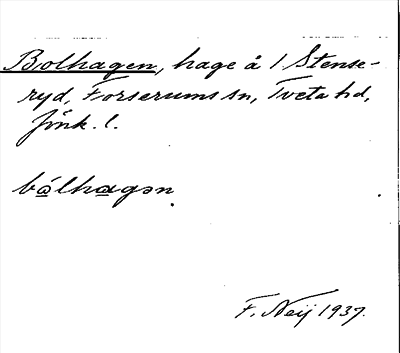 Bolhagen, hage å 1 Stense-
ryd, Forserums sn, Tveta hd,
Jönk. l.
bå̱lha̱gən
F. Neij 1937.